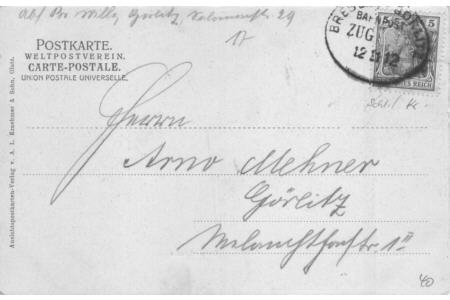 Abs/ Br. Willy Görlitz, Salomonstr. 29
17
POSTKARTE.
WELTPOSTVEREIN.
CARTE-POSTALE.
UNION POSTALE UNIVERSELLE.
BAHNPOST
ZUG
12 12
5
REICH
Herrn
Arno Mehner
Görlitz
Melanchthonstr. 1 II
Ansichtspostkarten-Verlag v. A. L. Krachmer & Sohn, Glatz.
40